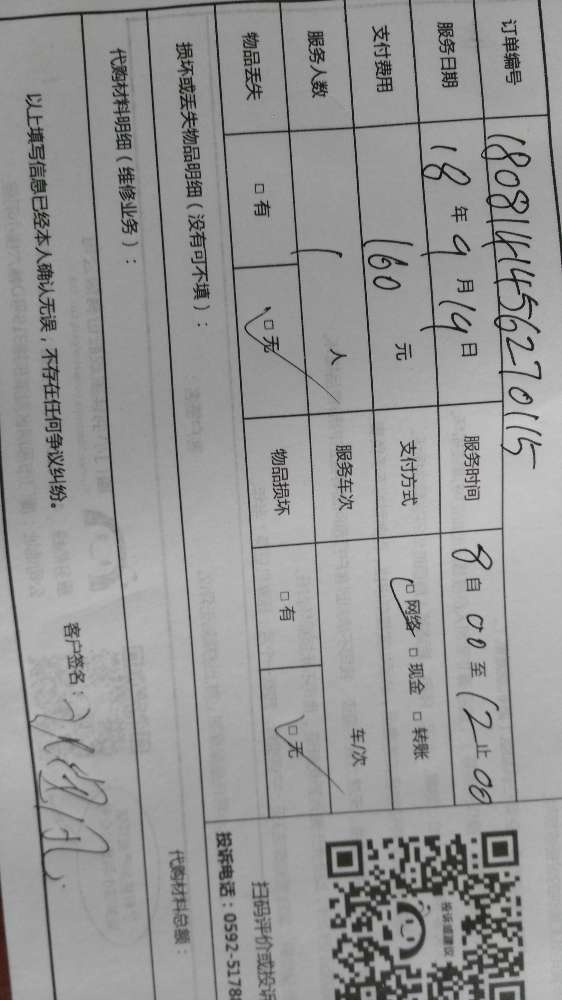 订单编号 180814456270115
服务日期 18年9月19日 服务时间 8自00至12止00
支付费用 160元 支付方式 □网络 □现金 □转账
服务人数 1人 服务车次 车/次
物品丢失 □有 □无 物品损坏 □有 □无
损坏或丢失物品明细（没有可不填）：
代购材料明细（维修业务）： 代购材料总额：
以上填写信息已经本人确认无误，不存在任何争议纠纷。
客户签名：
投诉或建议
扫码评价或投诉
投诉电话：0592-5178